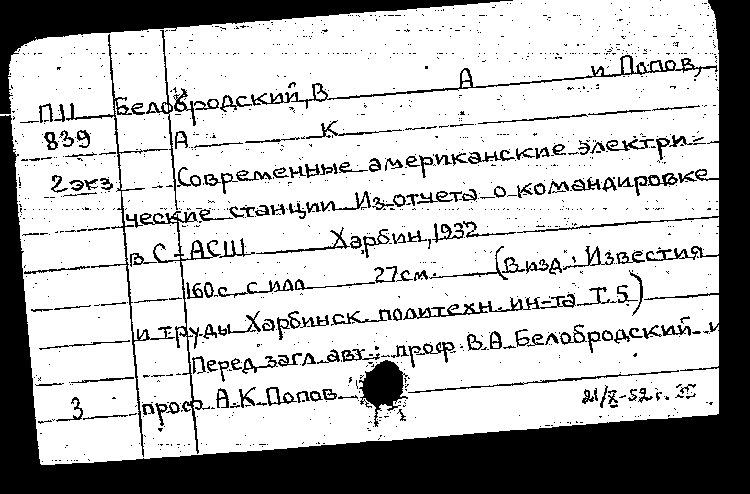 П11 Белобродский, В А и Попов,
839 А К
2 экз. Современные американские электри-
ческие станции Из отчета о командировке
в С-АСШ Харбин, 1932
160 с. с илл 27 см. (В изд.: Известия
и труды Харбинск. политехн. ин-та Т. 5)
Перед загл. авт.: проф. В.А. Белобродский и
3 проф А.К. Попов.
21/X-52 г.